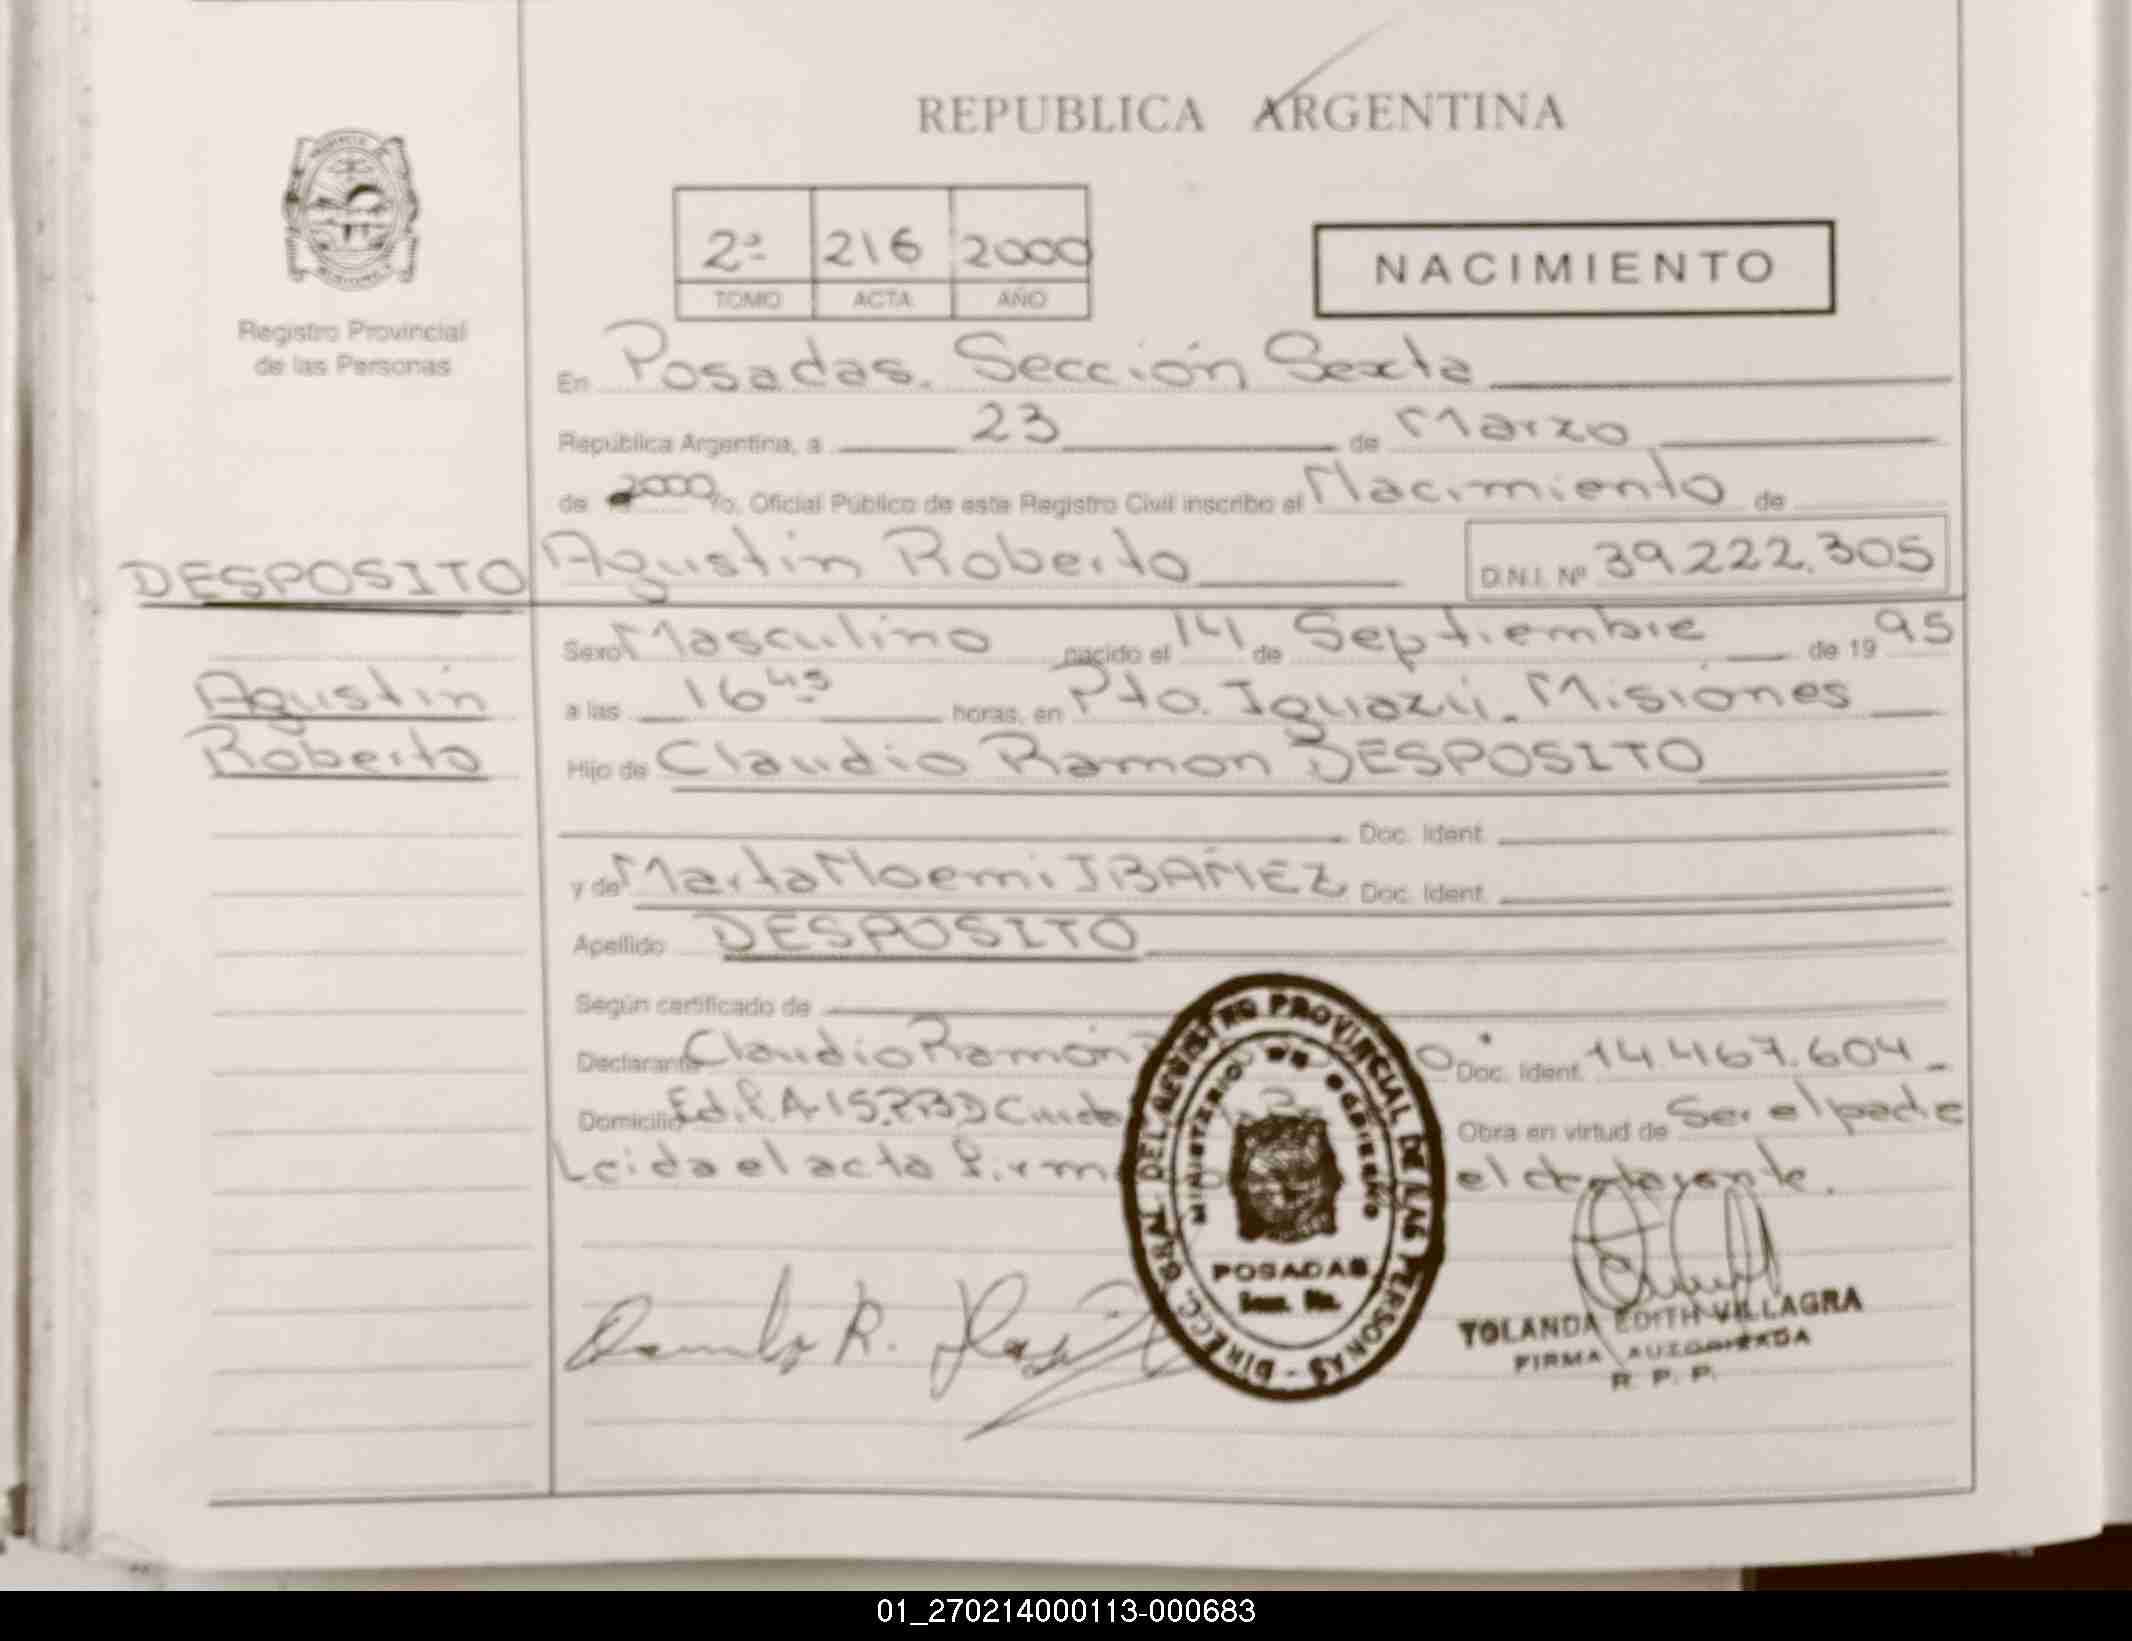 REPUBLICA ARGENTINA
2ª 216 2000
TOMO ACTA AÑO
NACIMIENTO
Registro Provincial
de las Personas
En Posadas. Sección Sexta
República Argentina, a 23 de Marzo
de 2000 Yo, Oficial Público de este Registro Civil inscribo el Nacimiento de
DESPOSITO Agustin Roberto D.N.I. Nº 39.222.305
Sexo Masculino nacido el 14 de Septiembre de 19 95
Agustin
Roberto
a las 16 45 horas, en Pto. Iguazú. Misiones
Hijo de Claudio Ramon DESPOSITO
Doc. Ident.
y de Marta Noemi IBAÑEZ Doc. Ident.
Apellido DESPOSITO
Según certificado de
Declarante Claudio Ramón Doc. Ident. 14.467.604
Domicilio Obra en virtud de Ser el padre
Leida el acta el
DIRECC. GRAL. DEL REGISTRO PROVINCIAL DE LAS PERSONAS
MINISTERIO DE GOBIERNO
POSADAS
YOLANDA EDITH VILLAGRA
FIRMA AUTORIZADA
R. P. P.
01_270214000113-000683